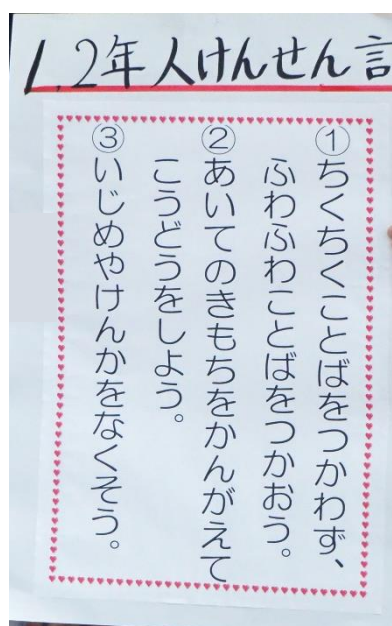 1,2年人けんせん言
①ちくちくことばをつかわず、
ふわふわことばをつかおう。
②あいてのきもちをかんがえて
こうどうをしよう。
③いじめやけんかをなくそう。